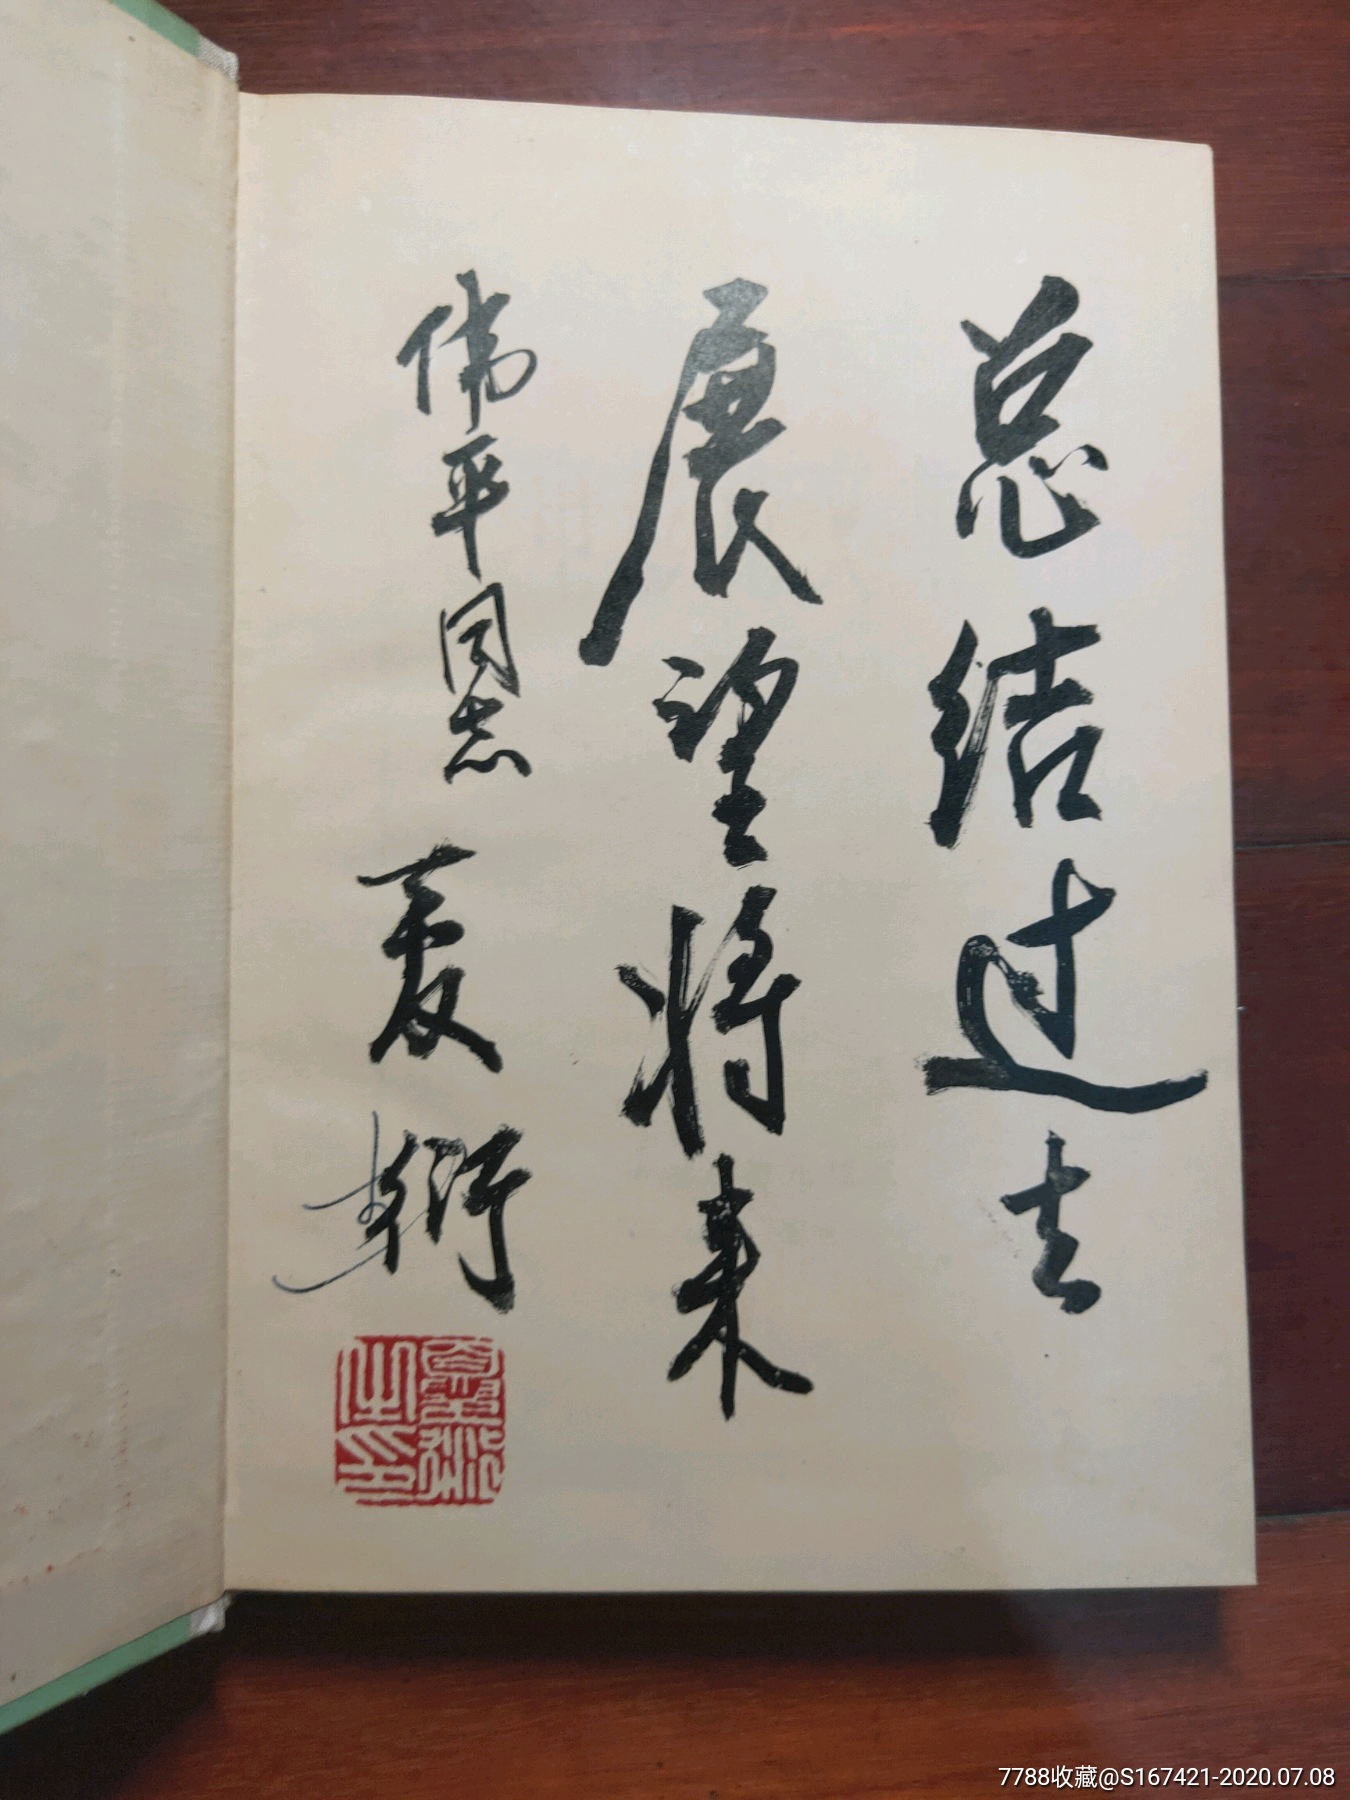 总结过去
展望将来
伟平同志 夏衍
夏衍之印
7788收藏@S167421-2020.07.08